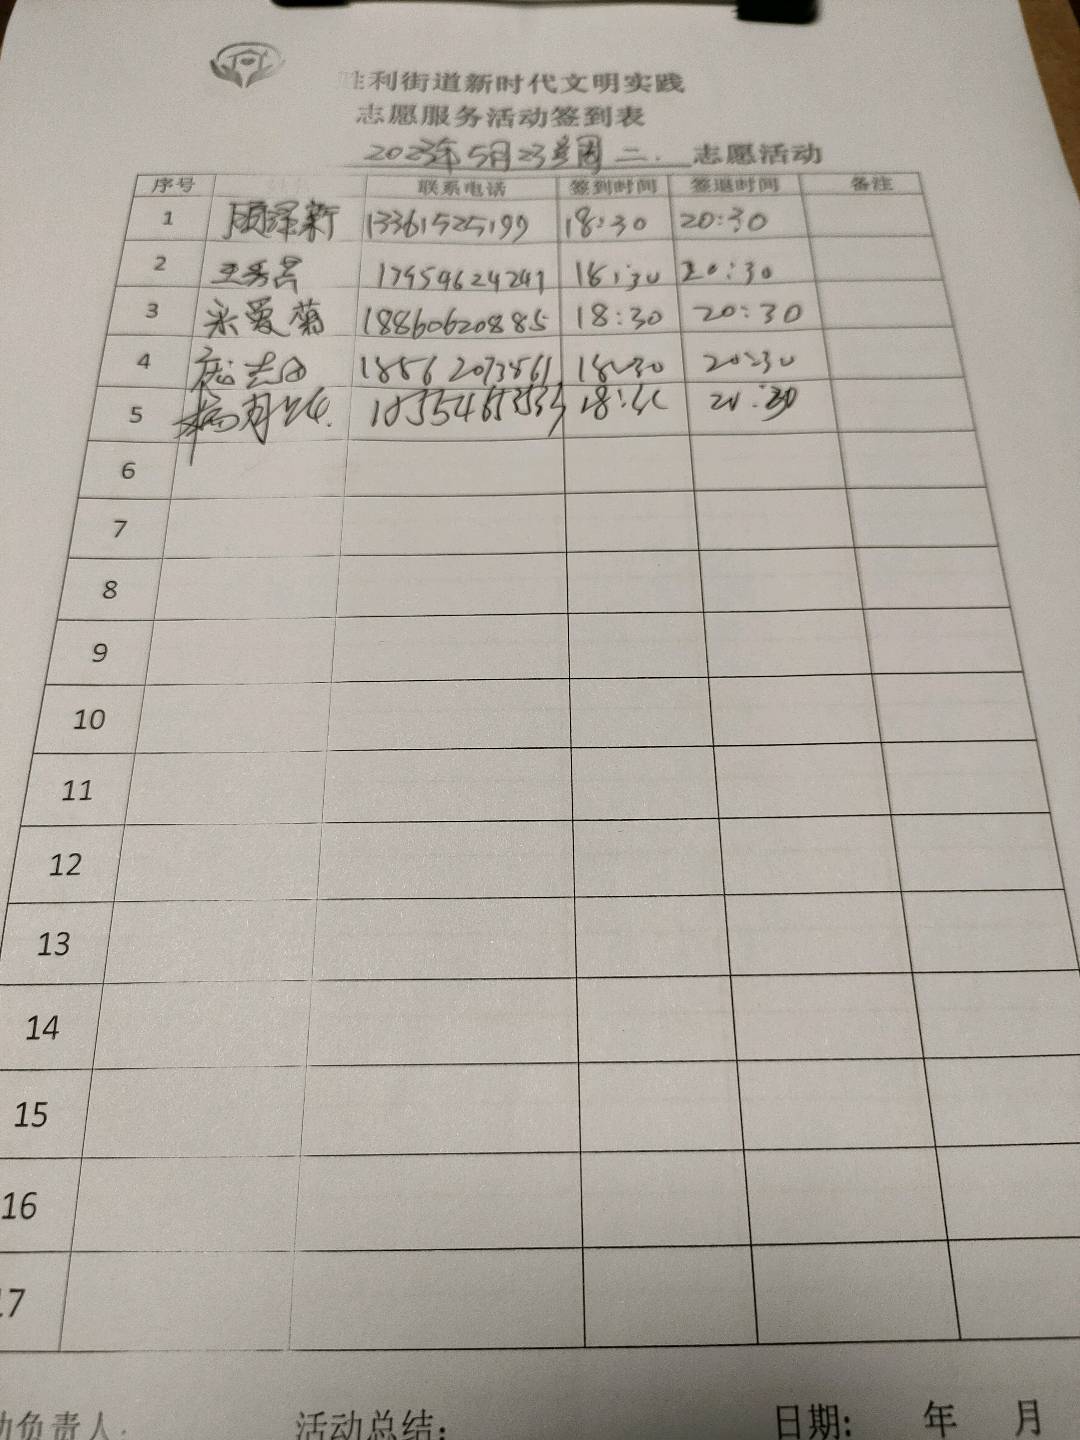 胜利街道新时代文明实践
志愿服务活动签到表
2023年5月23号周二. 志愿活动
序号 联系电话 签到时间 签退时间 备注
1 顾泽新 13361525199 18:30 20:30
2 18:30 20:30
3 爱菊 18860620885 18:30 20:30
4 18:30 20:30
5 20:30
6
7
8
9
10
11
12
13
14
15
16
17
动负责人: 活动总结: 日期: 年 月